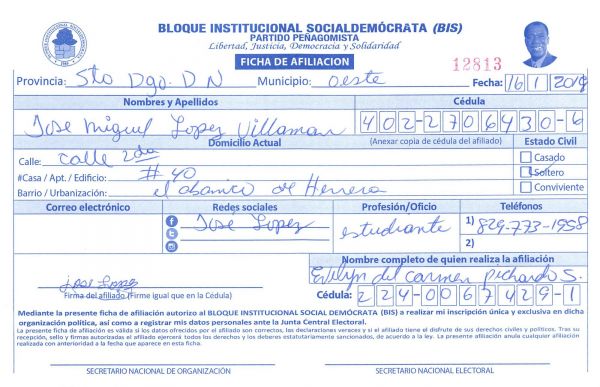 BLOQUE INSTITUCIONAL SOCIALDEMÓCRATA (BIS)
PARTIDO PEÑAGOMISTA
Libertad, Justicia, Democracia y Solidaridad
FICHA DE AFILIACION
12813
Provincia: Sto Dgo. D N Municipio: oeste Fecha: 16/1/2019
Nombres y Apellidos Cédula
Jose Miguel Lopez Villaman 402-2706430-6
Domicilio Actual (Anexar copia de cédula del afiliado) Estado Civil
Calle: calle 2da Casado
#Casa / Apt. / Edificio: # 40 Soltero
Barrio / Urbanización: el abanico de Herrera Conviviente
Correo electrónico Redes sociales Profesión/Oficio Teléfonos
Jose Lopez estudiante 1) 829-773-1958
2)
Nombre completo de quien realiza la afiliación
Evelyn del carmen Pichardo S.
Jose Lopez
Firma del afiliado (Firme igual que en la Cédula) Cédula: 224-0067429-1
Mediante la presente ficha de afiliación autorizo al BLOQUE INSTITUCIONAL SOCIAL DEMÓCRATA (BIS) a realizar mi inscripción única y exclusiva en dicha
organización política, así como a registrar mis datos personales ante la Junta Central Electoral.
La presente ficha de afiliación es válida si los datos ofrecidos por el afiliado son correctos, las declaraciones verces y si el afiliado tiene el disfrute de sus derechos civiles y políticos. Tras su
recepción, sello y firmas autorizadas el afiliado ejercerá todos los derechos y los deberes estatutariamente sancionados, de acuerdo a la ley. La presente afiliación anula cualquier afiliación
realizada con anterioridad a la fecha que aparece en esta ficha.
SECRETARIO NACIONAL DE ORGANIZACIÓN SECRETARIO NACIONAL ELECTORAL